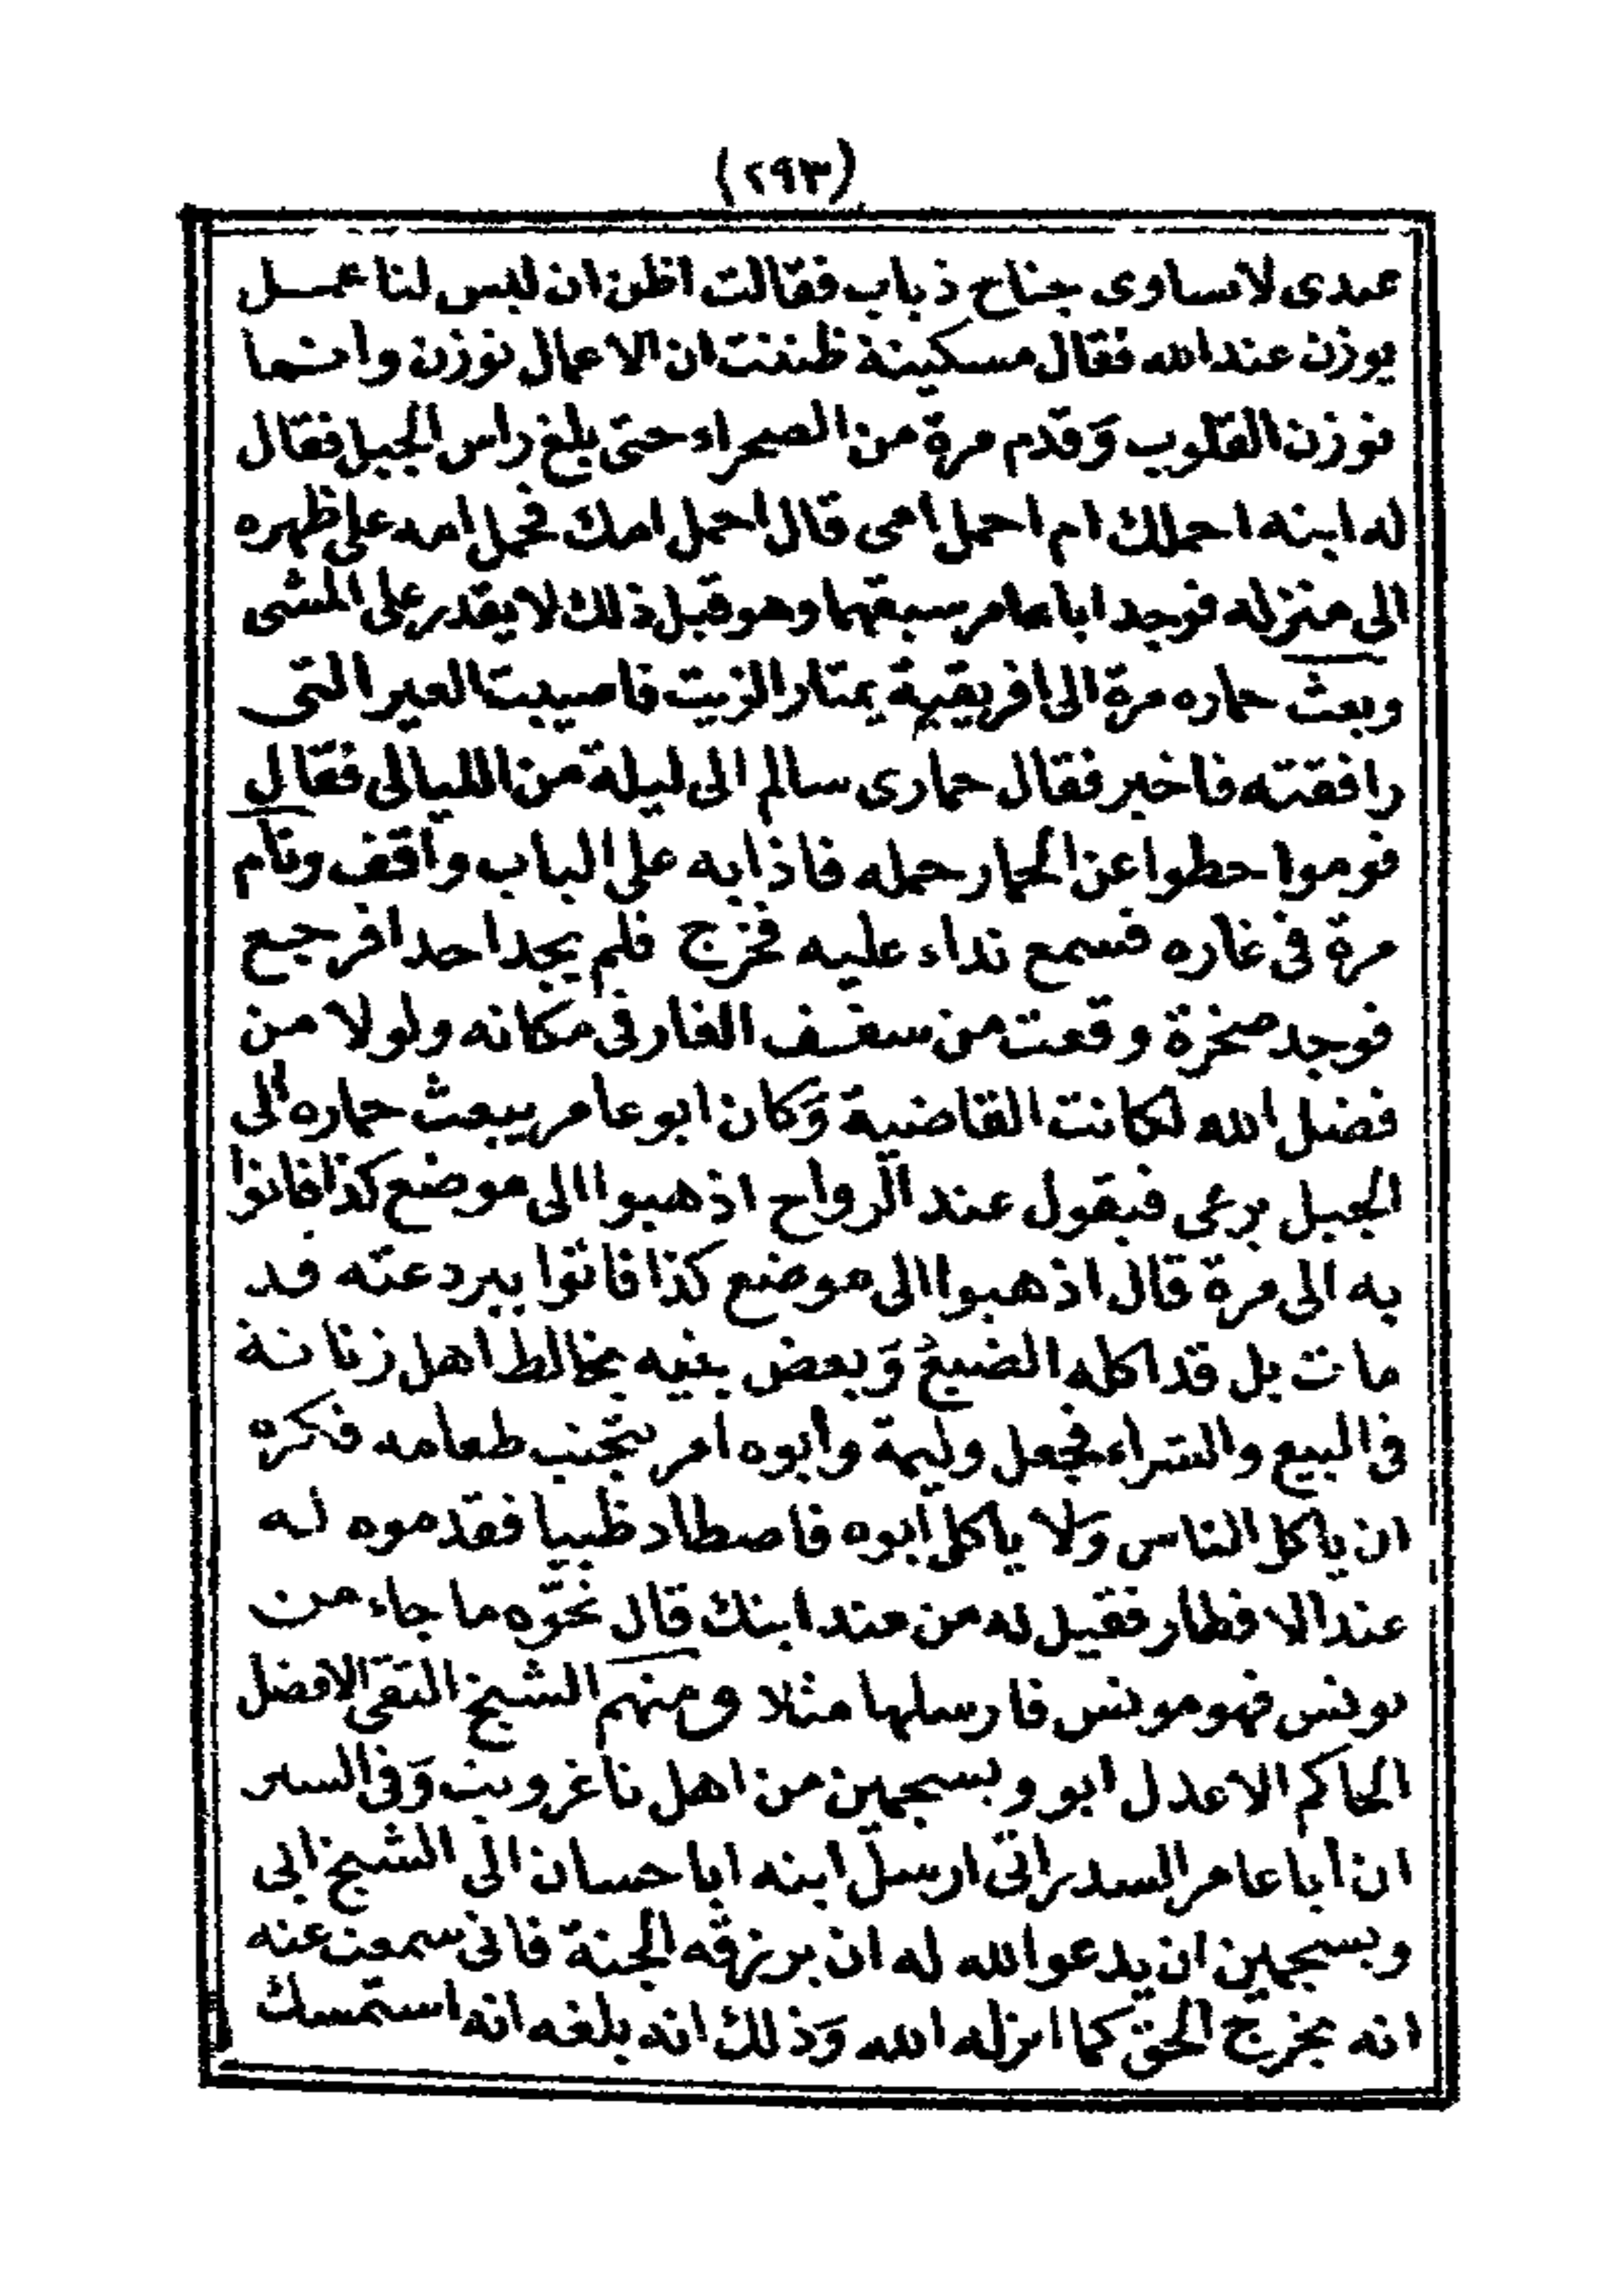 (٢٩٣)
عندى لا تساوى جناح ذباب فقالت اظن ان ليس لنا عمل
يوزن عند الله فقال مسكينة ظننت ان الاعمال توزن وانما
توزن القلوب وَقدم مرة من الصحراء حتى بلغ راس الجبل فقال
له ابنه احملك ام احمل امى قال احمل امك فحمل امه على ظهره
الى منزله فوجد ابا عامر سبقهما وهو قبل ذلك لا يقدر على المشى
وبعث حماره مرة الى افريقية يمتار الزيت فاصيبت العير التى
رافقته فاخبر فقال حمارى سالم الى ليلة من الليالى فقال
قوموا حطوا عن الحمار حمله فاذا به على الباب واقف ونام
مرة فى غاره فسمع نداء عليه فخرج فلم يجد احدا فرجع
فوجد صخرة وقعت من سقف الغار فى مكانه ولولا من
فضل الله لكانت القاضية وَكان ابو عامر يبعث حماره الى
الجبل يرعى فيقول عند الرواح اذهبوا الى موضع كذا فاتوا
به الى مرة قال اذهبوا الى موضع كذا فاتوا ببردعته قد
مات بل قد اكله الضبع وَبعض بنيه يخالط اهل زناتة
فى البيع والشراء فجعل وليمة وابوه امر بتجنب طعامه فكره
ان ياكل الناس وَلا ياكل ابوه فاصطاد ظبيا فقدموه له
عند الافطار فقيل له من عند ابنك قال نحّوه ما جاء من
تونس فهو مونس فارسلها مثلا ومنهم الشيخ التقى الافضل
الحاكم الاعدل ابو ويسجمين من اهل تاغرويت وَفى السير
ان ابا عامر السدراتى ارسل ابنه ابا حسان الى الشيخ ابى
ويسجمين ان يدعو الله له ان يرزقه الجنة فانى سمعت عنه
انه يخرج الحق كما انزله الله وَذلك انه بلغه انه استمسك